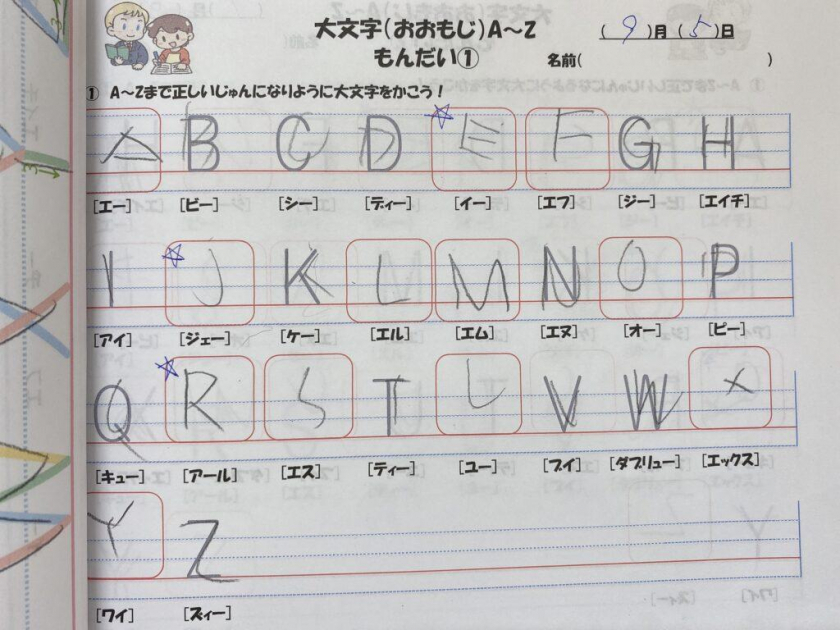 大文字(おおもじ)A〜Z
(9)月(5)日
もんだい①
名前( )
① A〜Zまで正しいじゅんになりように大文字をかこう!
A B C D E F G H
[エー] [ビー] [シー] [ディー] [イー] [エフ] [ジー] [エイチ]
I J K L M N O P
[アイ] [ジェー] [ケー] [エル] [エム] [エヌ] [オー] [ピー]
Q R S T U V W X
[キュー] [アール] [エス] [ティー] [ユー] [ブイ] [ダブリュー] [エックス]
Y Z
[ワイ] [ズィー]